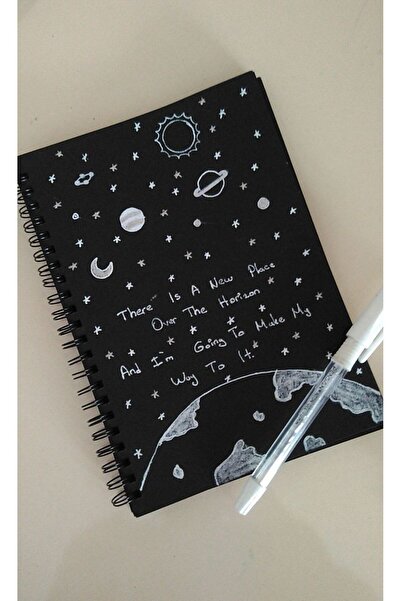 There Is A New Place
Over The Horizon
And I'm Going To Make My
Way To It.